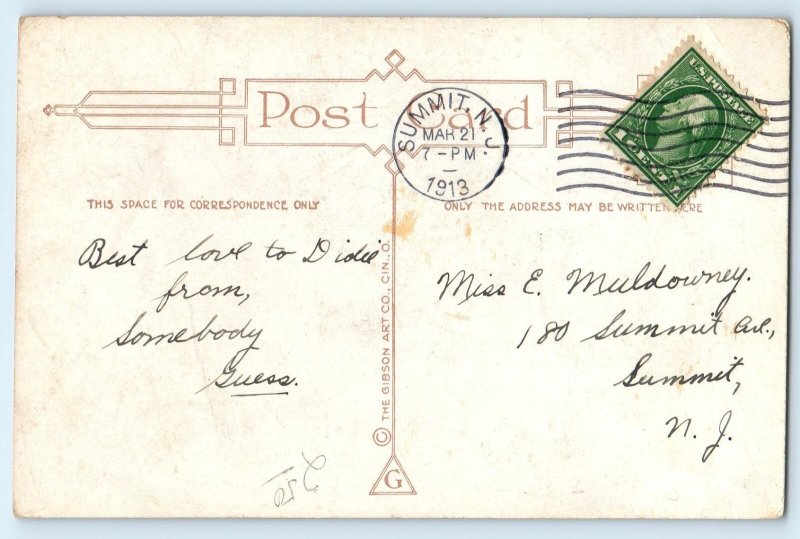 Post Card
SUMMIT, N.J.
MAR 21
7-PM
1913
U.S. POSTAGE
1 CENT 1
THIS SPACE FOR CORRESPONDENCE ONLY
ONLY THE ADDRESS MAY BE WRITTEN HERE
Best love to Didie
from,
Somebody
Guess.
Miss E. Muldowney.
180 Summit Ave.,
Summit,
N. J.
© THE GIBSON ART CO., CIN., O.
G